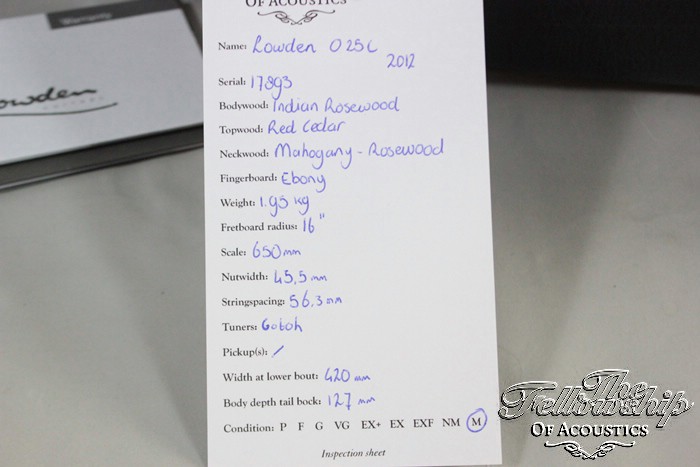 Warranty
Lowden
GUITARS
OF ACOUSTICS
Name: Lowden O25C
2012
Serial: 17893
Bodywood: Indian Rosewood
Topwood: Red Cedar
Neckwood: Mahogany - Rosewood
Fingerboard: Ebony
Weight: 1.95 kg
Fretboard radius: 16"
Scale: 650mm
Nutwidth: 45,5 mm
Stringspacing: 56.3 mm
Tuners: Gotoh
Pickup(s): /
Width at lower bout: 420 mm
Body depth tail bock: 127 mm
Condition: P F G VG EX+ EX EXF NM M
Inspection sheet
The
Fellowship
OF ACOUSTICS